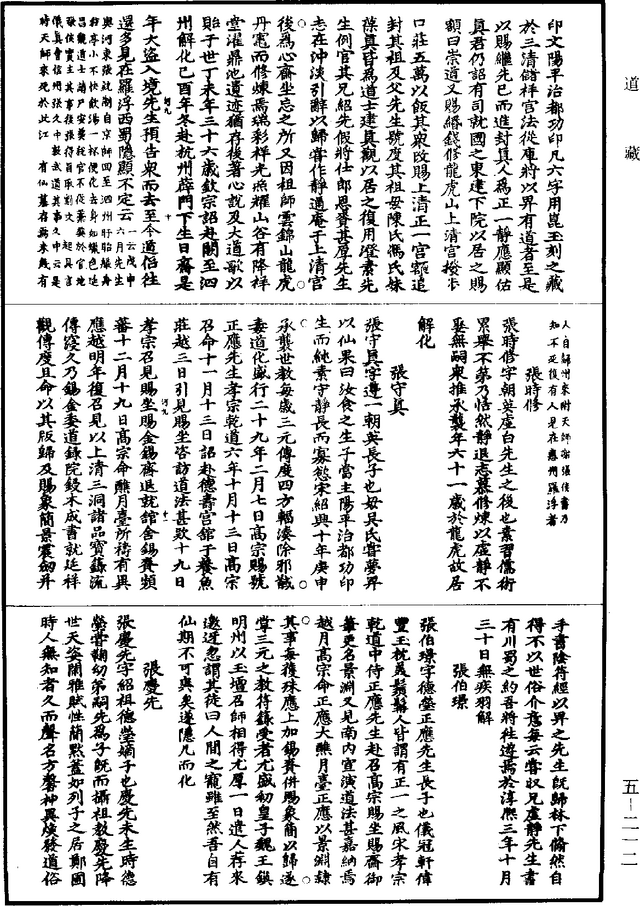 道藏
印文陽平治都功印凡六字用崑玉刻之藏
於三清儲祥宮法從庫將以畀有道者至是
以賜繼先已而進封真人為正一靜應顯佑
真君仍詔有司就國之東建下院以居之賜
額曰崇道又賜緡錢修龍虎山上清宮撥步
口莊五萬以飯其眾改賜上清正一宮額追
封其祖及父先生號度其祖母陳氏馮氏妹
葆真皆為道士建真觀以居之復用澄素先
生例官其兄紹先假將仕郎恩賚甚厚先生
志在沖淡引辭以歸嘗作靜通庵于上清宮
後為心齋坐忘之所又因祖師雲錦山龍虎
丹竈而修煉焉瑞彩祥光照耀山谷有降祥
堂濯鼎池遺迹猶存後著心說及大道歌以
貽于世丁未年三十六歲欽宗詔赴闕至泗
州解化己酉年冬赴杭州薛門下生日齋是
年大盜入境先生預告眾而去至今道俗往
還多見在羅浮西蜀隱顯不定云
人自解州來附天師謝張侯書乃
知不死後有人見在惠州羅浮者
張時修
張時修字朝英虛白先生之後也素習儒術
累舉不第乃恬然靜退志慕修煉以虛靜不
娶無嗣眾推承襲年六十一歲於龍虎故居
解化
張守真
張守真字遵一朝英長子也母吳氏嘗夢昇
以仙果曰汝食之生子當主陽平治都功印
生而純素守靜長而寡慾宋紹興十年庚申
承襲世教每歲三元傳度四方輻湊除邪誡
妻道化盛行二十九年二月七日高宗賜號
正應先生孝宗乾道六年十月十三日高宗
召命十一月十三日詔赴德壽宮舘于養魚
莊越三日引見賜坐咨訪道法甚歎十九日
孝宗召見賜坐賜金錫齋退就舘舍錫賚頻
蕃十二月十九日高宗命醮月臺所禱有異
應越明年復召見以上清三洞諸品寶籙流
傳寖久乃錫金委道錄院鋟木成書就廷祥
觀傳度且命以其版歸及賜象簡景震劒并
手書陰符經以畀之先生既歸林下翛然自
得不以世俗介意每云嘗収兄虛靜先生書
有川蜀之約吾將往遵焉於淳熙三年十月
三十日無疾羽解
張伯璟
張伯璟字德瑩正應先生長子也儀冠軒偉
豐玉枕美鬚鬢人皆謂有正一之風宋孝宗
乾道中侍正應先生赴召高宗賜坐賜齋御
筆更名景淵又見南內宣演道法甚嘉納焉
越月高宗命正應大醮月臺正應以景淵隸
其事每獲殊應上加錫賚併賜象簡以歸遂
掌三元之教符籙受者尤盛初皇子魏王鎮
明州以玉壇召師相得尤厚一日遣人存來
邀迓忽謂其徒曰人間之寵雖至然吾自有
仙期不可與矣遂隱几而化
張慶先
張慶先字紹祖德瑩嫡子也慶先未生時德
瑩嘗鞠幼弟嗣先為子既而攝祖教慶先降
世天姿閒雅賦性簡默蓋如列子之居鄭圃
時人無知者久而聲名方馨神異煥發道俗
五—二一二